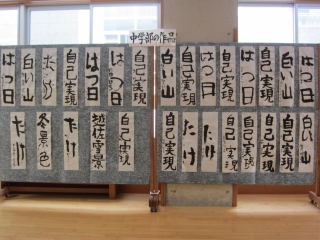 中学部の作品
はつ日
白い山
自己実現
自己実現
はつ日
はつ日
自己実現
白い山
自己実現
はつ日
はつ日
自己実現
たけ
白い山
はつ日
白い山
自己実現
自己実現
自己実現
自己実現
たけ
たけ
自己実現
自己実現
越佐雪景
たけ
冬景色
たけ